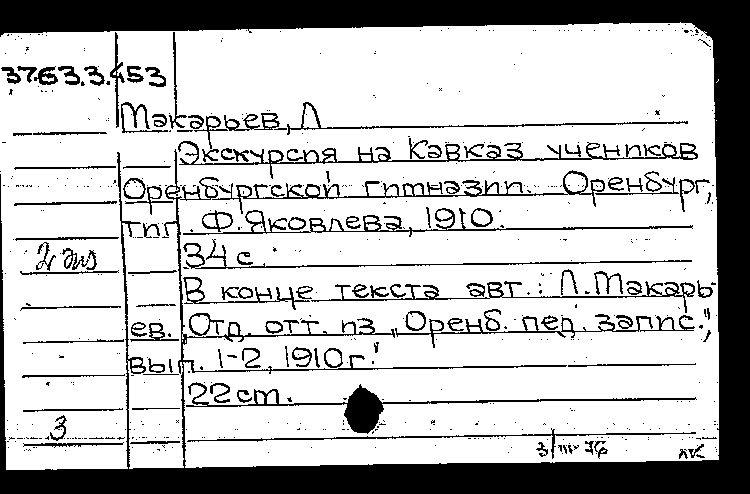 37.63.3.453
Макарьев, Л
Экскурсия на Кавказ учеников
Оренбургской гимназии. Оренбург,
тип. Ф. Яковлева, 1910.
2 экз
34 с.
В конце текста авт.: Л. Макарь-
ев. „Отд. отт. из „Оренб. пед. запис.",
вып. 1-2, 1910 г."
22 ст.
3
3/III-76